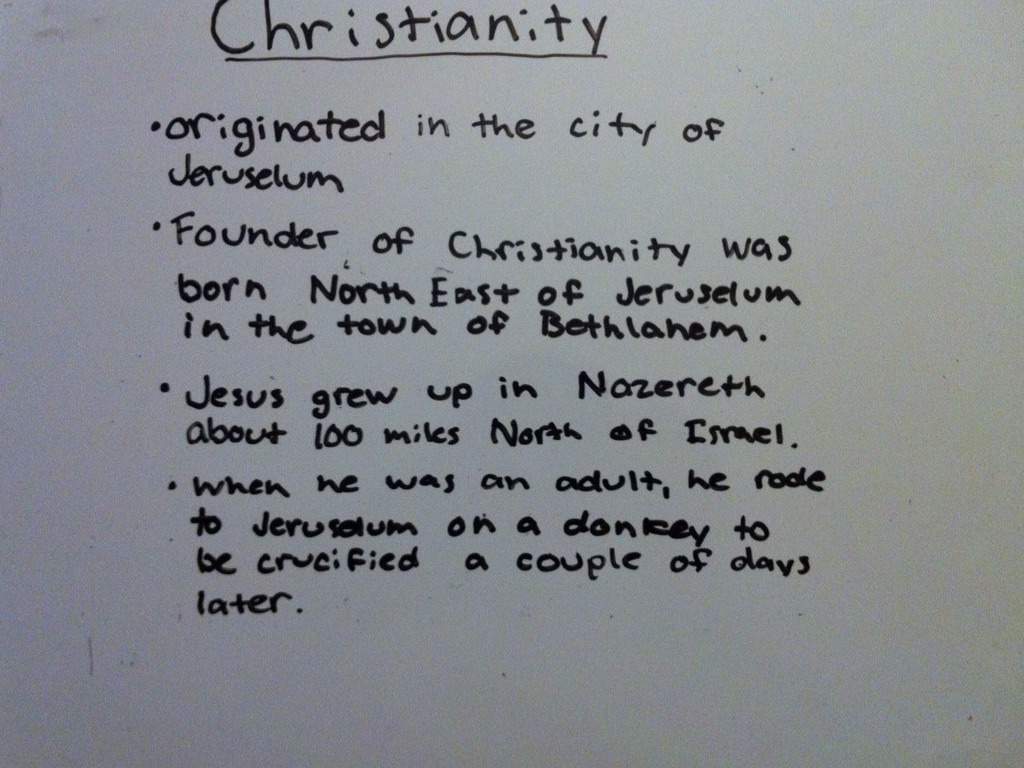 Christianity
•originated in the city of
Jeruselum
•Founder of Christianity was
born North East of Jeruselum
in the town of Bethlahem.
•Jesus grew up in Nazereth
about 100 miles North of Israel.
•when he was an adult, he rode
to Jeruselum on a donkey to
be crucified a couple of days
later.